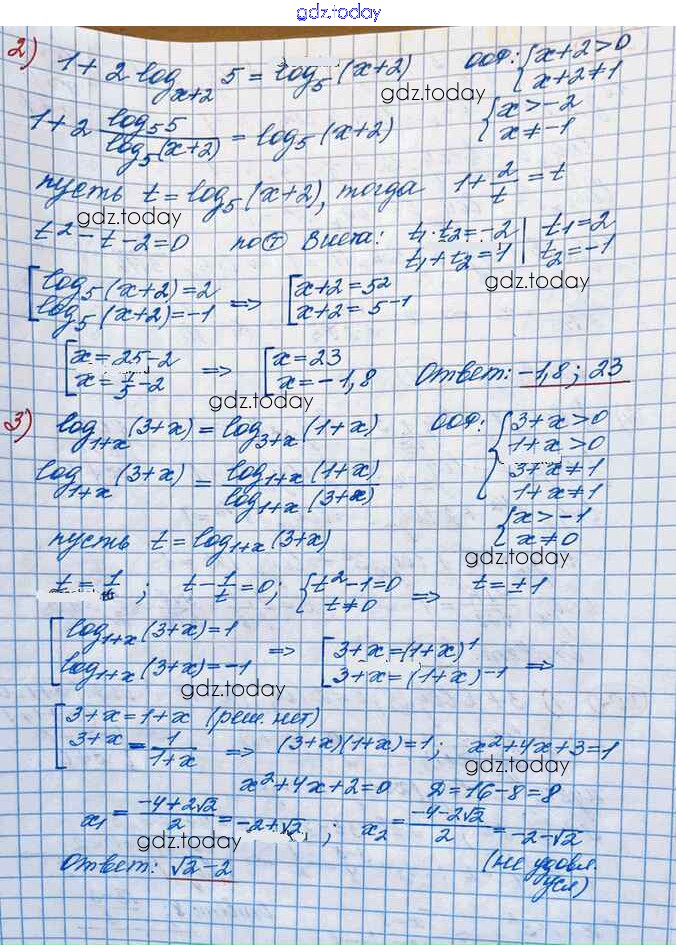 gdz.today
2) 1 + 2 log_{x+2} 5 = log_5 (x+2) ООФ: { x+2 > 0
x+2 ≠ 1
gdz.today
{ x > -2
x ≠ -1
1 + 2 log_5 5 / log_5 (x+2) = log_5 (x+2)
пусть t = log_5 (x+2), тогда 1 + 2/t = t
gdz.today
t² - t - 2 = 0 по т Виета: t₁ · t₂ = -2 | t₁ = 2
t₁ + t₂ = 1 | t₂ = -1
gdz.today
[ log_5 (x+2) = 2 => [ x+2 = 5²
log_5 (x+2) = -1 x+2 = 5⁻¹
[ x = 25 - 2 => [ x = 23 Ответ: -1,8 ; 23
x = 1/5 - 2 x = -1,8
gdz.today
3) log_{1+x} (3+x) = log_{3+x} (1+x) ООФ: { 3+x > 0
1+x > 0
3+x ≠ 1
1+x ≠ 1
log_{1+x} (3+x) = log_{1+x} (1+x) / log_{1+x} (3+x)
{ x > -1
x ≠ 0
gdz.today
пусть t = log_{1+x} (3+x)
t = 1/t ; t - 1/t = 0; { t² - 1 = 0 => t = ±1
t ≠ 0
[ log_{1+x} (3+x) = 1 => [ 3+x = (1+x)¹ =>
log_{1+x} (3+x) = -1 3+x = (1+x)⁻¹
gdz.today
[ 3+x = 1+x (реш. нет)
3+x = 1/(1+x) => (3+x)(1+x) = 1; x² + 4x + 3 = 1
gdz.today
x² + 4x + 2 = 0 D = 16 - 8 = 8
x₁ = (-4 + 2√2)/2 = -2 + √2 ; x₂ = (-4 - 2√2)/2 = -2 - √2
gdz.today
(не удовл.
усл)
Ответ: √2 - 2